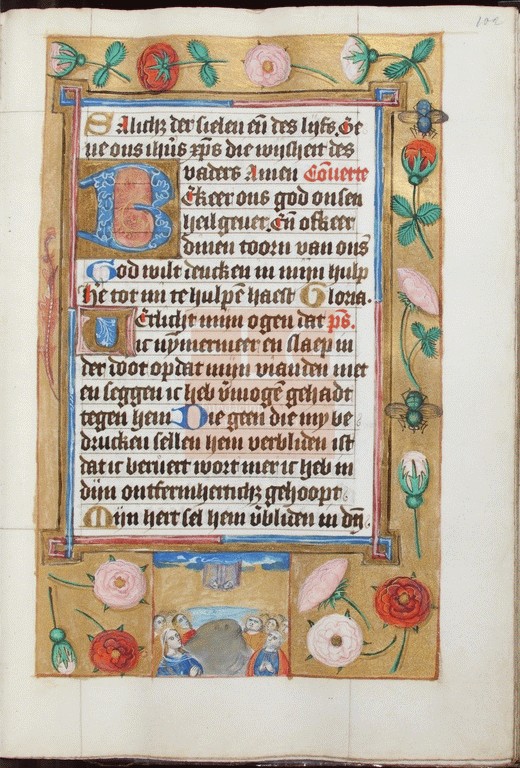 102
Salich₃ der sielen en̄ des lijfs. Ge
ue ons ih̄us xp̄s die wijsheit des
vaders Amen Cōuerte
Bekeer ons god onsen
heilgeuer. En̄ ofkeer
dinen toorn van ons
God wilt dencken in mijn hulp
he̅ tot mi te hulpē haest Gloria.
Verlicht mijn ogen dat p̄s.
ic nỹmermeer en slaep in
der doot op dat mijn vianden niet
en seggen ic heb v̄mogē gehadt
tegen hem Die geen die my be
drucken sellen hem verbliden ist
dat ic beruert wort mer ic heb in
dijn ontfermhertich₃ gehoopt
Mijn hert sel hem v̄bliden in dijn̄